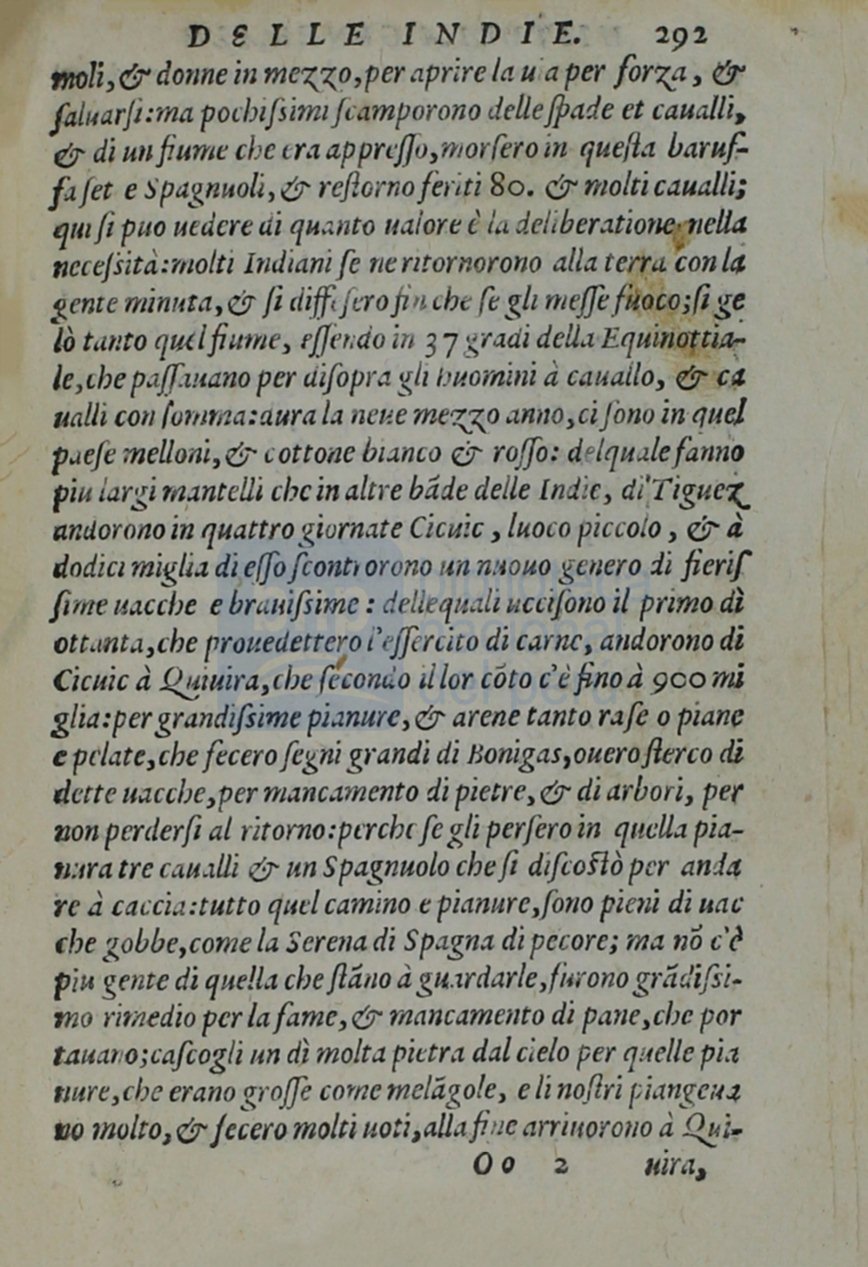 DELLE INDIE. 292
moli, & donne in mezzo, per aprire la uia per forza, &
ſaluarſi: ma pochiſsimi ſcamporono delle ſpade et caualli,
& di un fiume che era appreſſo, morſero in queſta baruf-
fa ſet e Spagnuoli, & reſtorno feriti 80. & molti caualli;
qui ſi puo uedere di quanto ualore è la deliberatione nella
neceſsità: molti Indiani ſe ne ritornorono alla terra con la
gente minuta, & ſi diffeſero fin che ſe gli meſſe fuoco; ſi ge
lò tanto quel fiume, eſſendo in 37 gradi della Equinottia-
le, che paſſauano per diſopra gli huomini à cauallo, & ca
ualli con ſomma: dura la neue mezzo anno, ci ſono in quel
paeſe melloni, & cottone bianco & roſſo: delquale fanno
piu largi mantelli che in altre bãde delle Indie, di Tiguez
andorono in quattro giornate Cicuic, luoco piccolo, & à
dodici miglia di eſſo ſcontrorono un nuouo genero di fieriſ
ſime uacche e brauiſsime: dellequali ucciſono il primo dì
ottanta, che prouedettero l'eſſercito di carne, andorono di
Cicuic à Quiuira, che ſecondo il lor cõto c'è fino à 900 mi
glia: per grandiſsime pianure, & arene tanto raſe o piane
e pelate, che fecero ſegni grandi di Bonigas, ouero ſterco di
dette uacche, per mancamento di pietre, & di arbori, per
non perderſi al ritorno: perche ſe gli perſero in quella pia-
nura tre caualli & un Spagnuolo che ſi diſcoſtò per anda
re à caccia: tutto quel camino e pianure, ſono pieni di uac
che gobbe, come la Serena di Spagna di pecore; ma nõ c'è
piu gente di quella che ſtãno à guardarle, furono grãdiſsi-
mo rimedio per la fame, & mancamento di pane, che por
tauano; caſcogli un dì molta pietra dal cielo per quelle pia
nure, che erano groſſe come melãgole, e li noſtri piangeua
no molto, & fecero molti uoti, alla fine arriuorono à Qui-
Oo 2 uira,